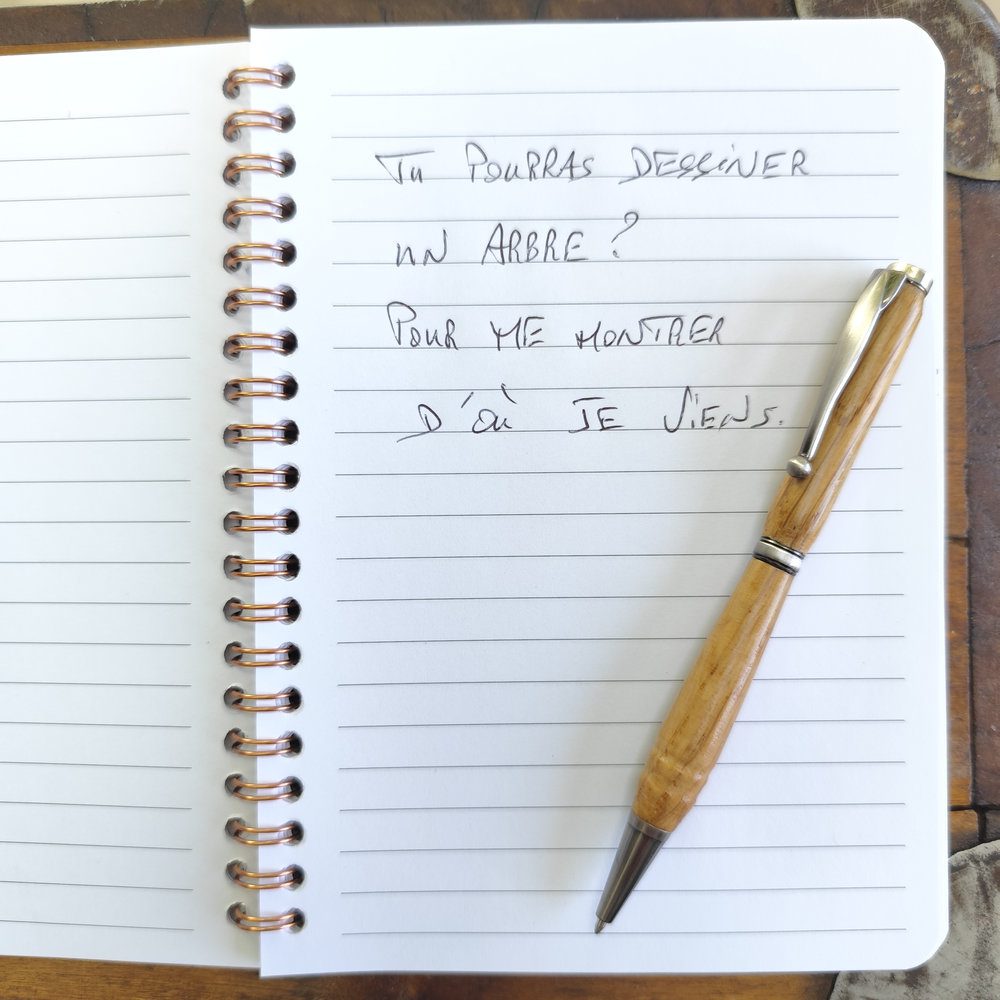 TU POURRAS DESSINER
UN ARBRE ?
POUR ME MONTRER
D'OÙ JE VIENS.